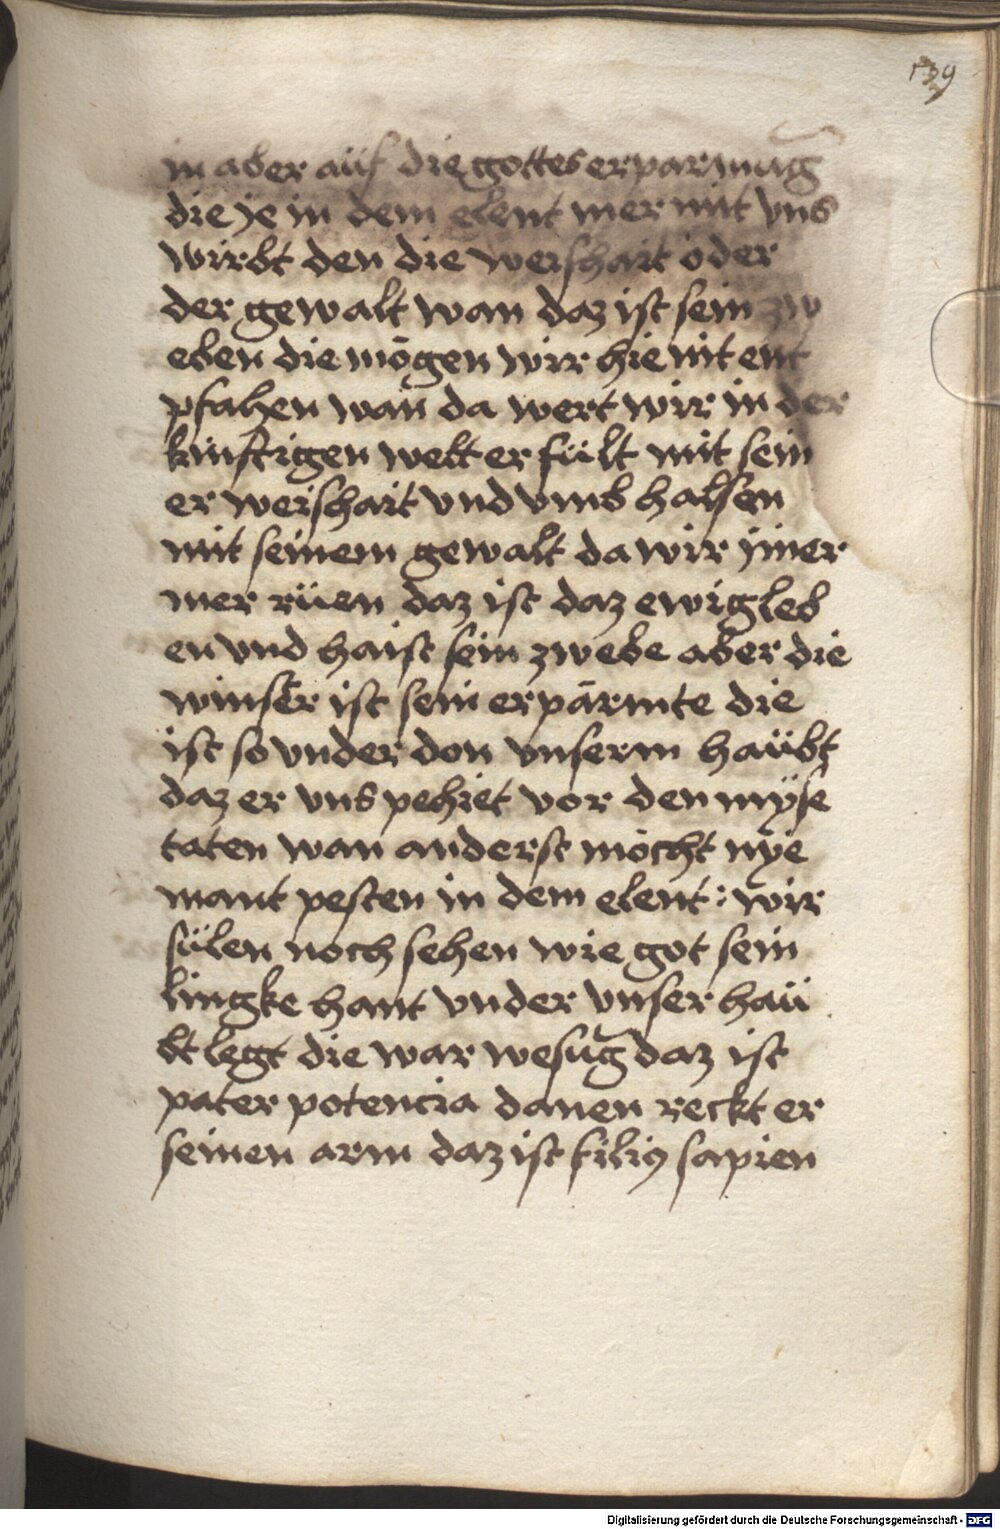 139
in aber aüf die gottes erparmūg
die ye in dem elent mer mit vns
wirbt den die weishait oder
der gewalt wan daz ist sein zw
eben die mögen wir hie nit ent
pfahen wan̄ da wert wir in der
künftigen welt er fült mit sein
er weishait vnd vmb halsen
mit seinem gewalt da wir ym̄er
mer rüen daz ist daz ewig leb
en vnd haist sein zwebe aber die
winster ist sein erpärmte die
ist so vnder don vnserm haübt
daz er vns pehiet vor den mÿse
taten wan anderst möcht nÿe
mant pesten in dem elent : wir
sülen noch sehen wie got sein
lingke hant vnder vnser haü
bt legt die war wesūg daz ist
pater potencia danen reckt er
seinen arm daz ist filiꝰ sapien
Digitalisierung gefördert durch die Deutsche Forschungsgemeinschaft - DFG